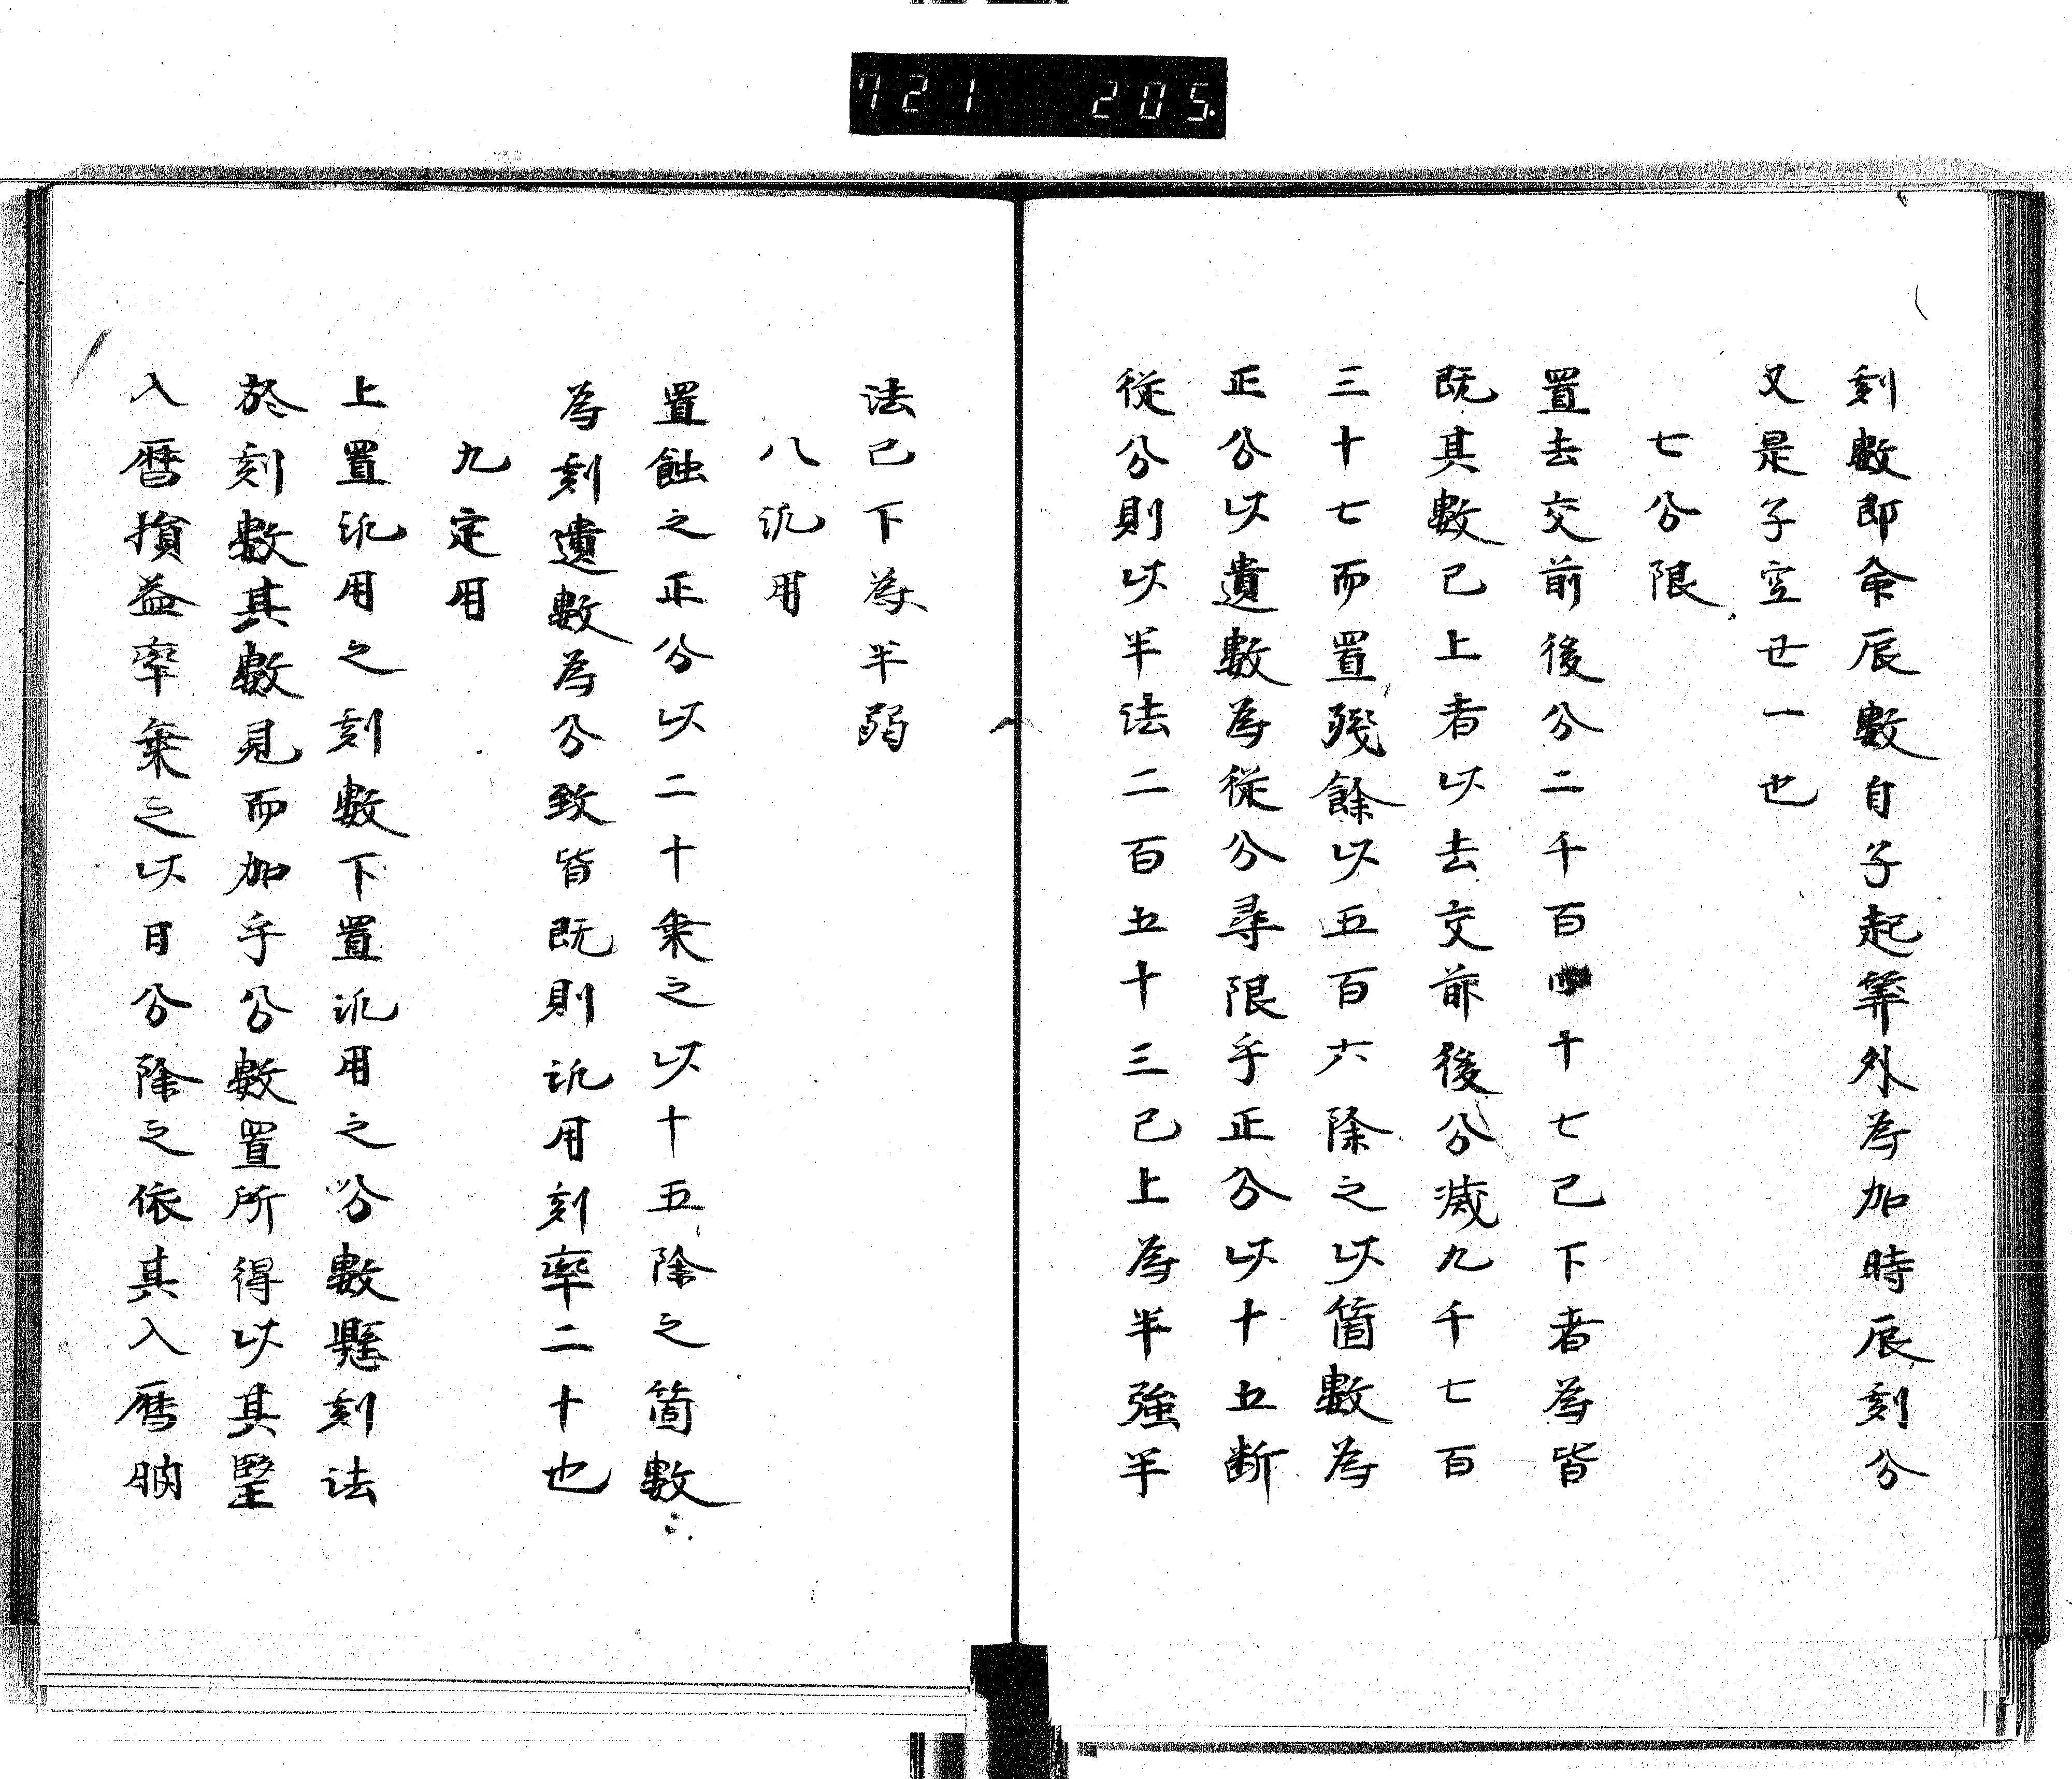 721 205
刻數即命辰數自子起筭外為加時辰刻分
又是子空丗一也
七分限
置去交前後分二千百四十七已下者為皆
既其數已上者以去交前後分減九千七百
三十七而置残餘以五百六除之以箇數為
正分以遺數為從分尋限乎正分以十五断
從分則以半法二百五十三已上為半強半
法已下為半弱
八汎用
置蝕之正分以二十乗之以十五除之箇數
為刻遺數為分致皆既則汎用刻率二十也
九定用
上置汎用之刻數下置汎用之分數懸刻法
於刻數其數見而加乎分數置所得以其墅
入曆損益率乗之以日分除之依其入曆朒